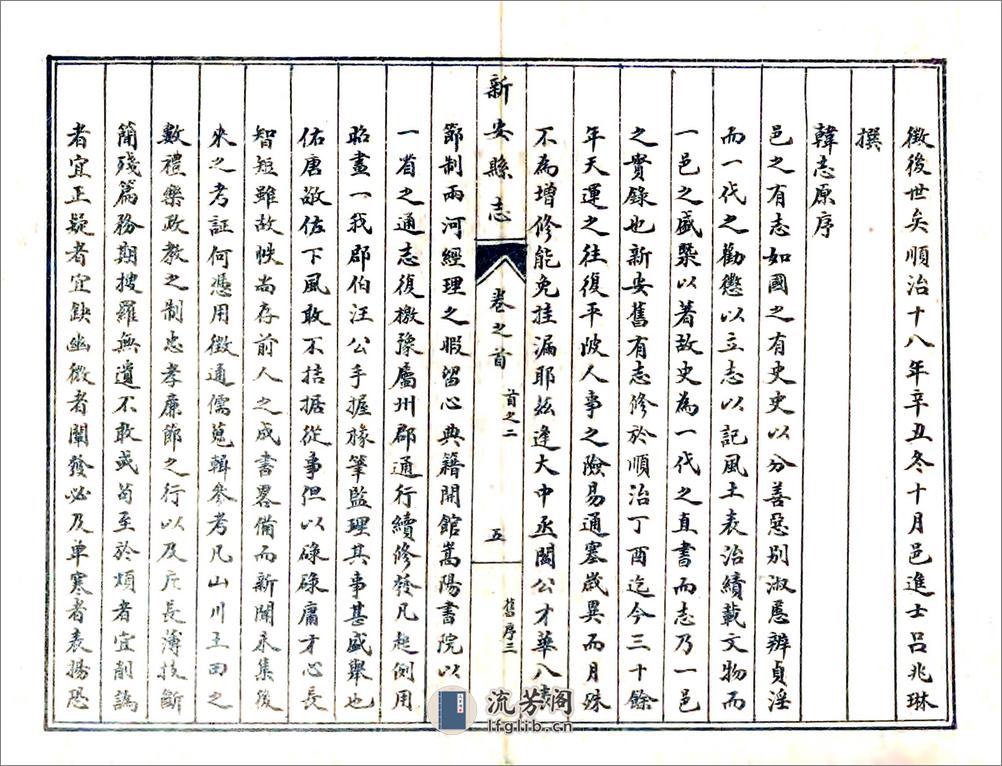 徵後世矣順治十八年辛丑冬十月邑進士呂兆琳
撰
韓志原序
邑之有志如國之有史史以分善惡別淑慝辨貞淫
而一代之勸懲以立志以記風土表治績載文物而
一邑之盛槩以著故史為一代之直書而志乃一邑
之實錄也新安舊有志修於順治丁酉迄今三十餘
年天運之往復平陂人事之險易通塞歲異而月殊
不為增修能免挂漏耶茲逢大中丞閻公才華八
新安縣志
卷之首
首之二
五
舊序三
節制兩河經理之暇留心典籍開館嵩陽書院以
一省之通志復檄豫屬州郡通行續修發凡起例用
昭畫一我郡伯汪公手握椽筆監理其事甚盛舉也
佑唐敬佐下風敢不拮据從事但以碌碌庸才心長
智短雖故帙尚存前人之成書畧備而新聞未集後
來之考証何憑用徵通儒蒐輯參考凡山川王田之
數禮樂政教之制忠孝廉節之行以及片長薄技斷
簡殘篇務期搜羅無遺不敢或苟至於煩者宜削譌
者宜正疑者宜缺幽微者闡發必及单寒者表揚恐
流芳閣
lfglib.cn